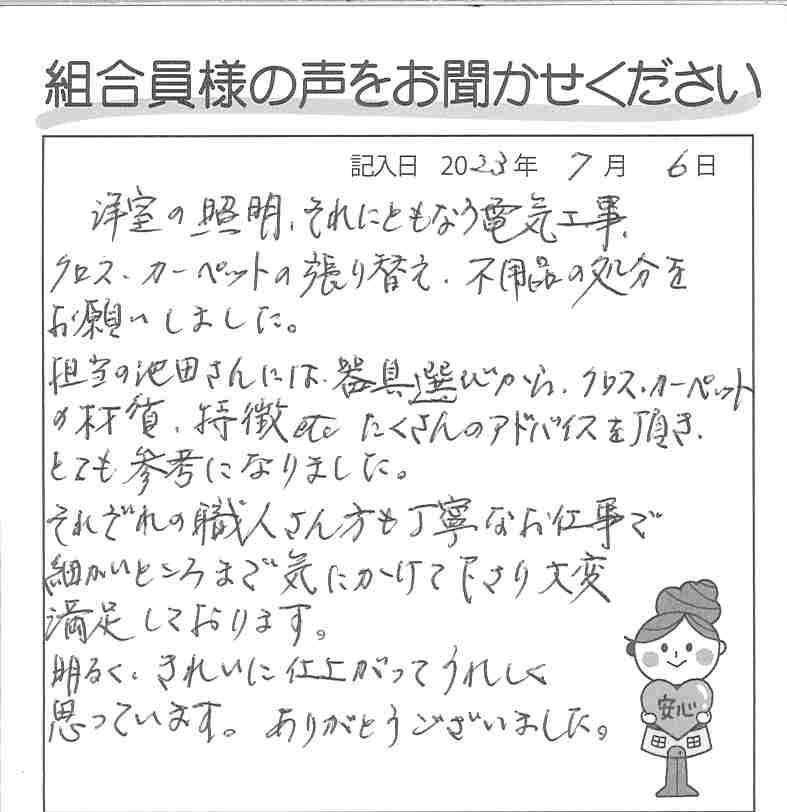 組合員様の声をお聞かせください
記入日 2023年 7月 6日
洋室の照明、それにともなう電気工事、
クロス、カーペットの張り替え、不用品の処分を
お願いしました。
担当の池田さんには、器具選びから、クロス、カーペット
の材質、特徴etcたくさんのアドバイスを頂き、
とても参考になりました。
それぞれの職人さん方も丁寧なお仕事で
細かいところまで気にかけて下さり大変
満足しております。
明るく、きれいに仕上がってうれしく
思っています。ありがとうございました。
安心